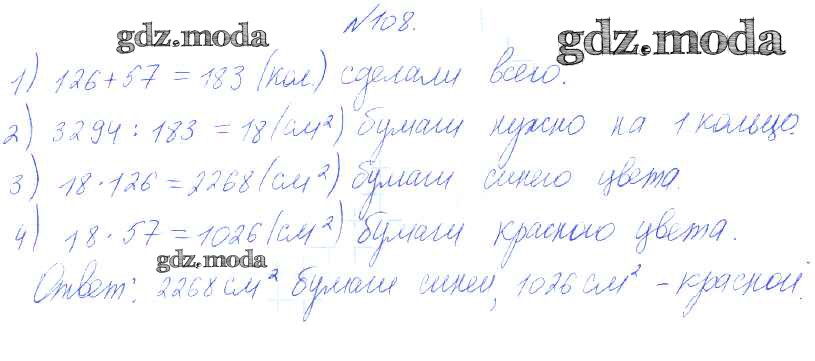 №108.
gdz.moda gdz.moda
1) 126+57=183 (кол.) сделали всего.
2) 3294:183=18 (см²) бумаги нужно на 1 кольцо.
3) 18·126=2268 (см²) бумаги синего цвета.
4) 18·57=1026 (см²) бумаги красного цвета.
gdz.moda
Ответ: 2268 см² бумаги синей, 1026 см² - красной.